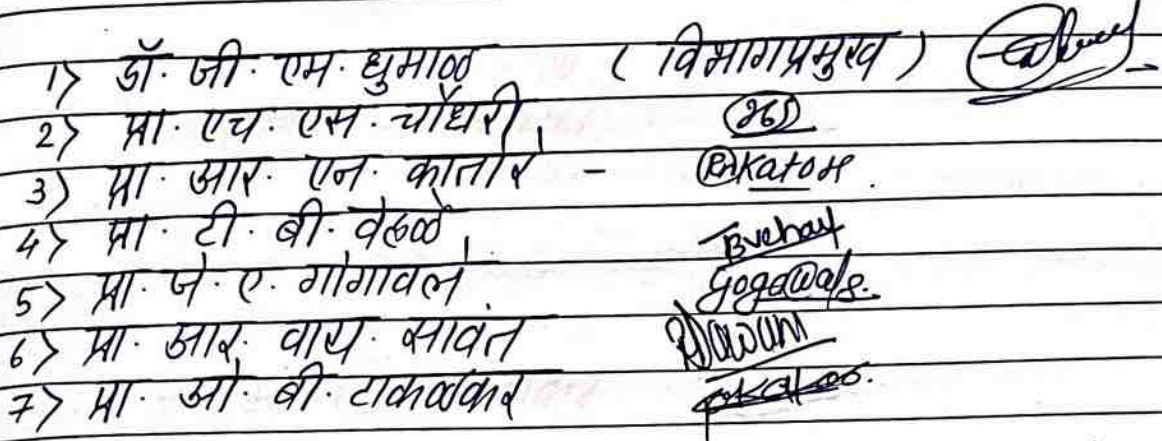 1) डॉ. जी. एम. धुमाळ ( विभागप्रमुख )
2) प्रा. एच. एस. चौधरी.
3) प्रा. आर. एन. कातोरे - RNKatore.
4) प्रा. टी. बी. वेहळे.
5) प्रा. जे. ए. गोगावले. Gogawale.
6) प्रा. आर. वाय. सावंत
7) प्रा. ओ. बी. टाकळकर